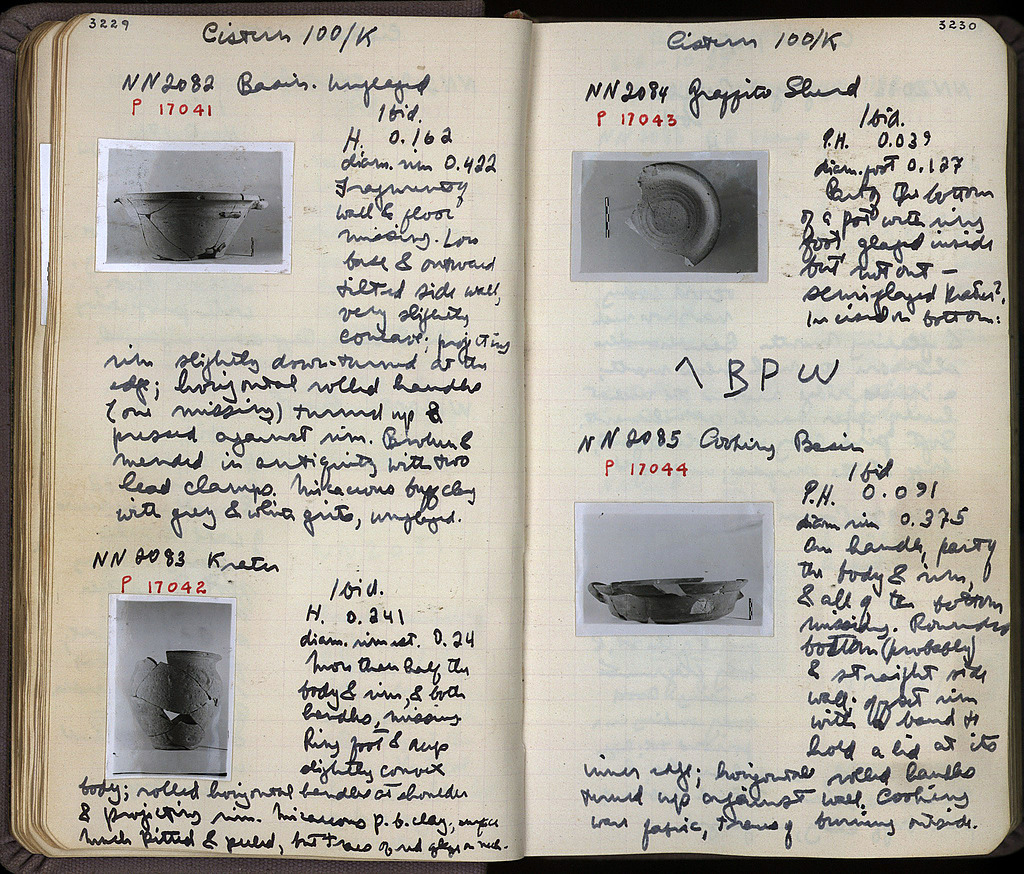 3229
Cistern 100/K
NN2082 Basin. Unglazed
P 17041
Ibid.
H. 0.162
diam. rim 0.422
Fragments of
wall & floor
missing. Low
base & outward
tilted side wall,
very slightly
concave; projecting
rim slightly down-turned at the
edge; horizontal rolled handles
(one missing) turned up &
pressed against rim. Broken &
mended in antiquity with two
lead clamps. Micaceous buff clay
with grey & white grits, unglazed.
NN2083 Krater
P 17042
Ibid.
H. 0.241
diam. rim est. 0.24
More than half the
body & rim, & both
handles, missing
Ring foot &
slightly convex
body; rolled horizontal handles at shoulder
& projecting rim. Micaceous p.b. clay, surface
much pitted & peeled, but traces of red glaze on neck.
3230
Cistern 100/K
NN2084 Graffito Sherd
P 17043
Ibid.
P.H. 0.039
diam. foot 0.127
Part of the bottom
of a pot with ring
foot glazed inside
but not out –
semiglazed krater?
Incised on bottom:
ΛBPW
NN2085 Cooking Basin
P 17044
Ibid
P.H. 0.091
diam rim 0.375
One handle, part of
the body & rim,
& all of the bottom
missing. Rounded
bottom (probably)
& straight side
wall; offset rim
with band to
hold a lid at its
inner edge; horizontal rolled handles
turned up against wall. Cooking
ware fabric, traces of burning outside.